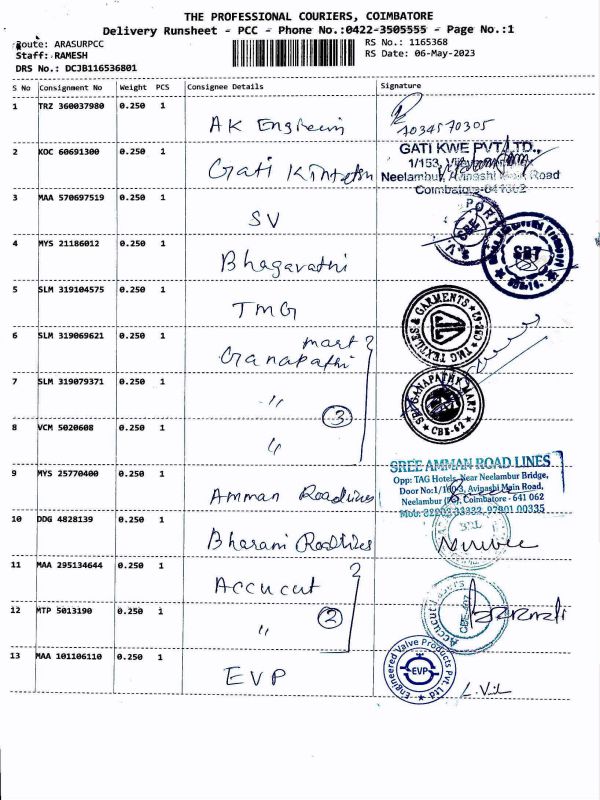 THE PROFESSIONAL COURIERS, COIMBATORE
Delivery Runsheet - PCC - Phone No.:0422-3505555 - Page No.:1
Route: ARASURPCC
Staff: RAMESH
DRS No.: DCJB116536801
RS No.: 1165368
RS Date: 06-May-2023
S No Consignment No Weight PCS Consignee Details Signature
1 TRZ 360037980 0.250 1 AK Engineerin
2 KOC 60691300 0.250 1 Gati Kintetsu
GATI KWE PVT LTD.,
1/153,
Neelambur, Avinashi Main Road
Coimbatore-641062
3 MAA 570697519 0.250 1 SV
4 MYS 21186012 0.250 1 Bhagavathi
SBT
5 SLM 319104575 0.250 1 TMG
TMG TEXTILES & GARMENTS CBE-62
6 SLM 319069621 0.250 1 Ganapathi mart
7 SLM 319079371 0.250 1 "
3
SRI GANAPATHI MART
CBE-62
8 VCM 5020608 0.250 1 "
9 MYS 25770400 0.250 1 Amman Roadlines
SREE AMMAN ROAD LINES
Opp: TAG Hotels, Near Neelambur Bridge,
Door No:1/160-3, Avinashi Main Road,
Neelambur (PO), Coimbatore - 641 062
97901 00335
10 DDG 4828139 0.250 1 Bharani Roadlines
BRL
11 MAA 295134644 0.250 1 Accucut
12 MTP 5013190 0.250 1 "
2
13 MAA 101106110 0.250 1 EVP
Engineered Valve Products Pvt. Ltd
EVP